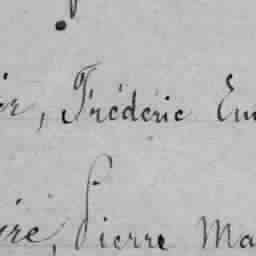 er, Frédéric Em
re, Pierre Ma